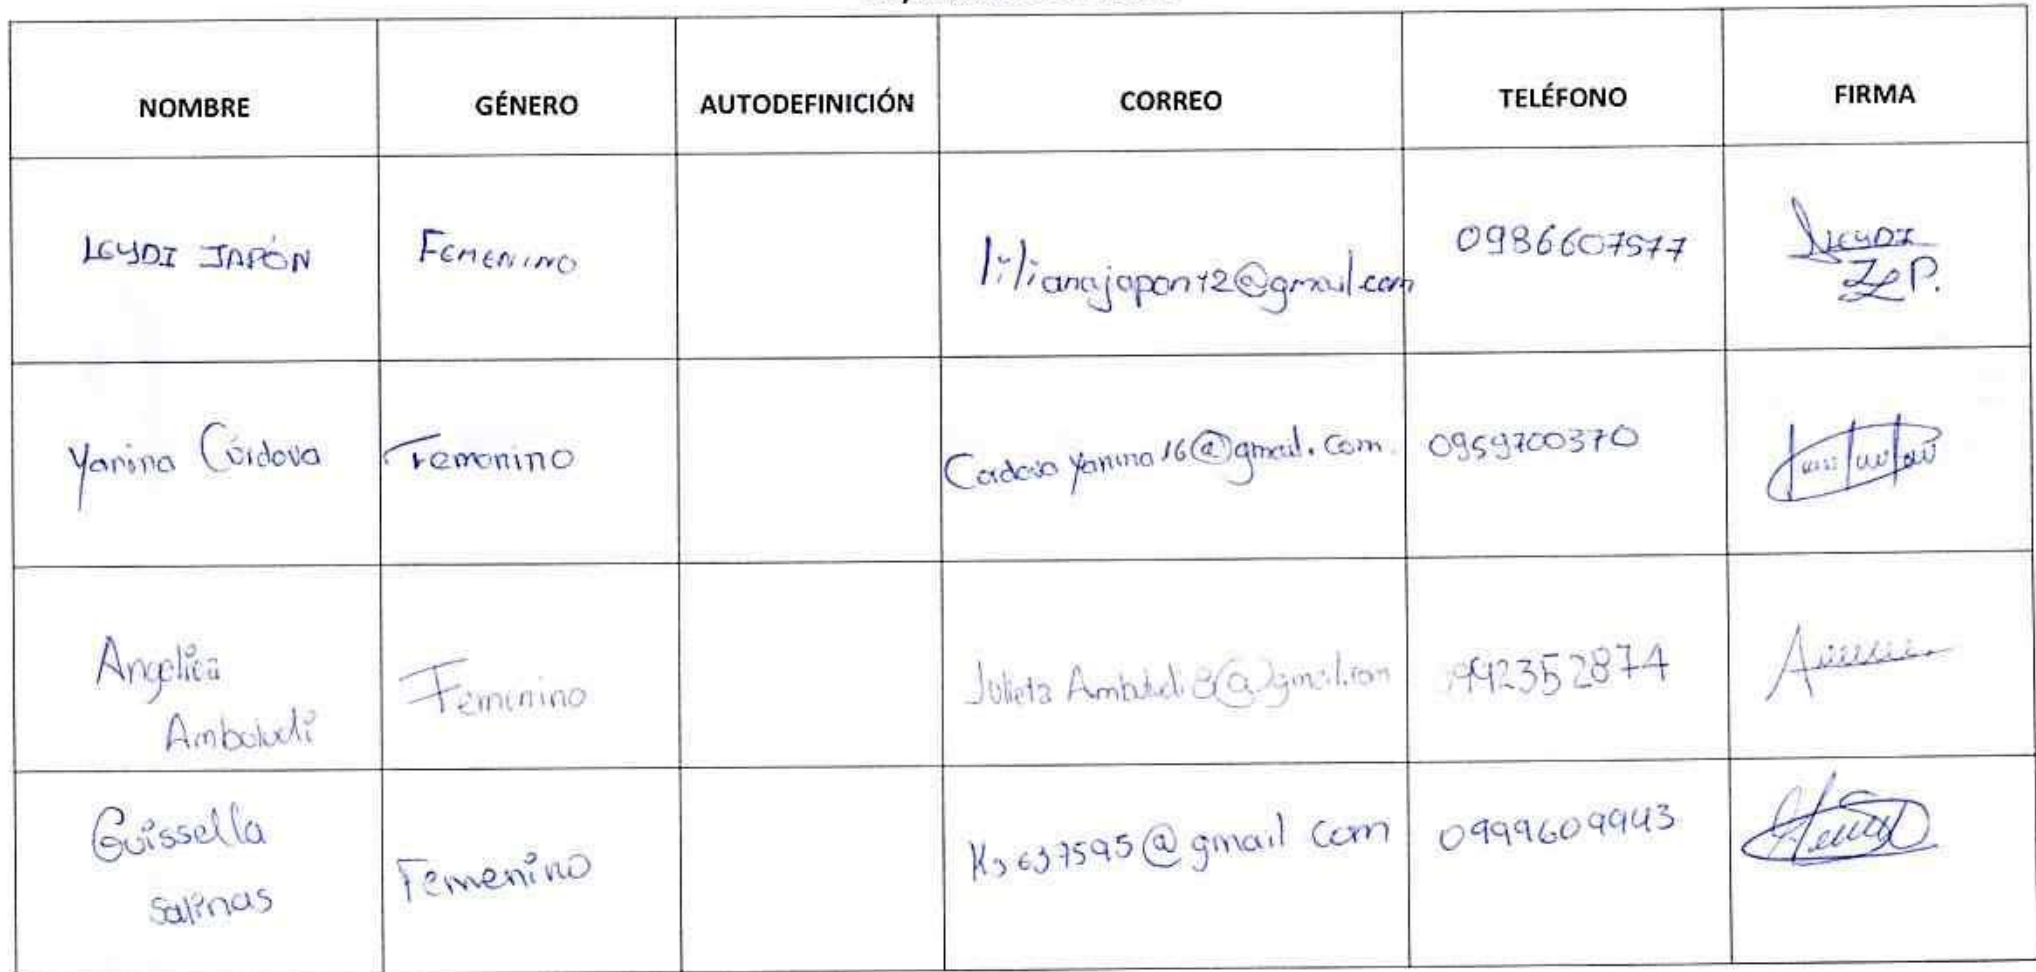 NOMBRE GÉNERO AUTODEFINICIÓN CORREO TELÉFONO FIRMA
LEYDI JAPÓN FEMENINO lilianajapon12@gmail.com 0986607577 LEYDI
Yanina Córdova Femenino Cordova yanina 16@gmail.com. 0959700370
Angelica
Ambuludi Femenino Julieta Ambuludi 8@gmail.com 992352874
Guissella
Salinas Femenino 0999609943